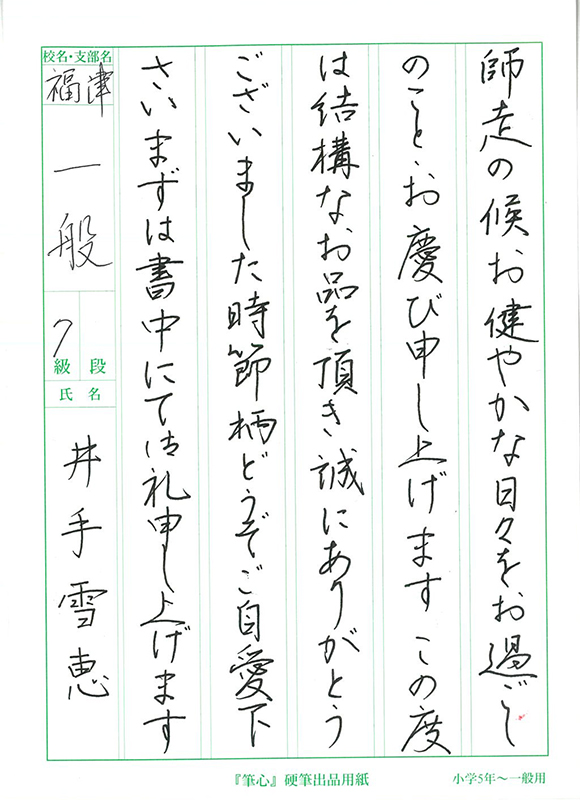 師走の候お健やかな日々をお過ごし
のこと、お慶び申し上げますこの度
は結構なお品を頂き誠にありがとう
ございました時節柄どうぞご自愛下
さいまずは書中にて御礼申し上げます
校名・支部名
福津
一般
7
級 段
氏名
井手雪恵
『筆心』硬筆出品用紙
小学5年〜一般用